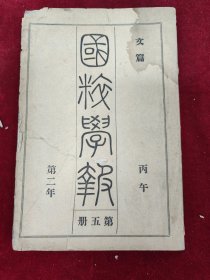 文篇
丙午
國粹學報
第五册
第二年